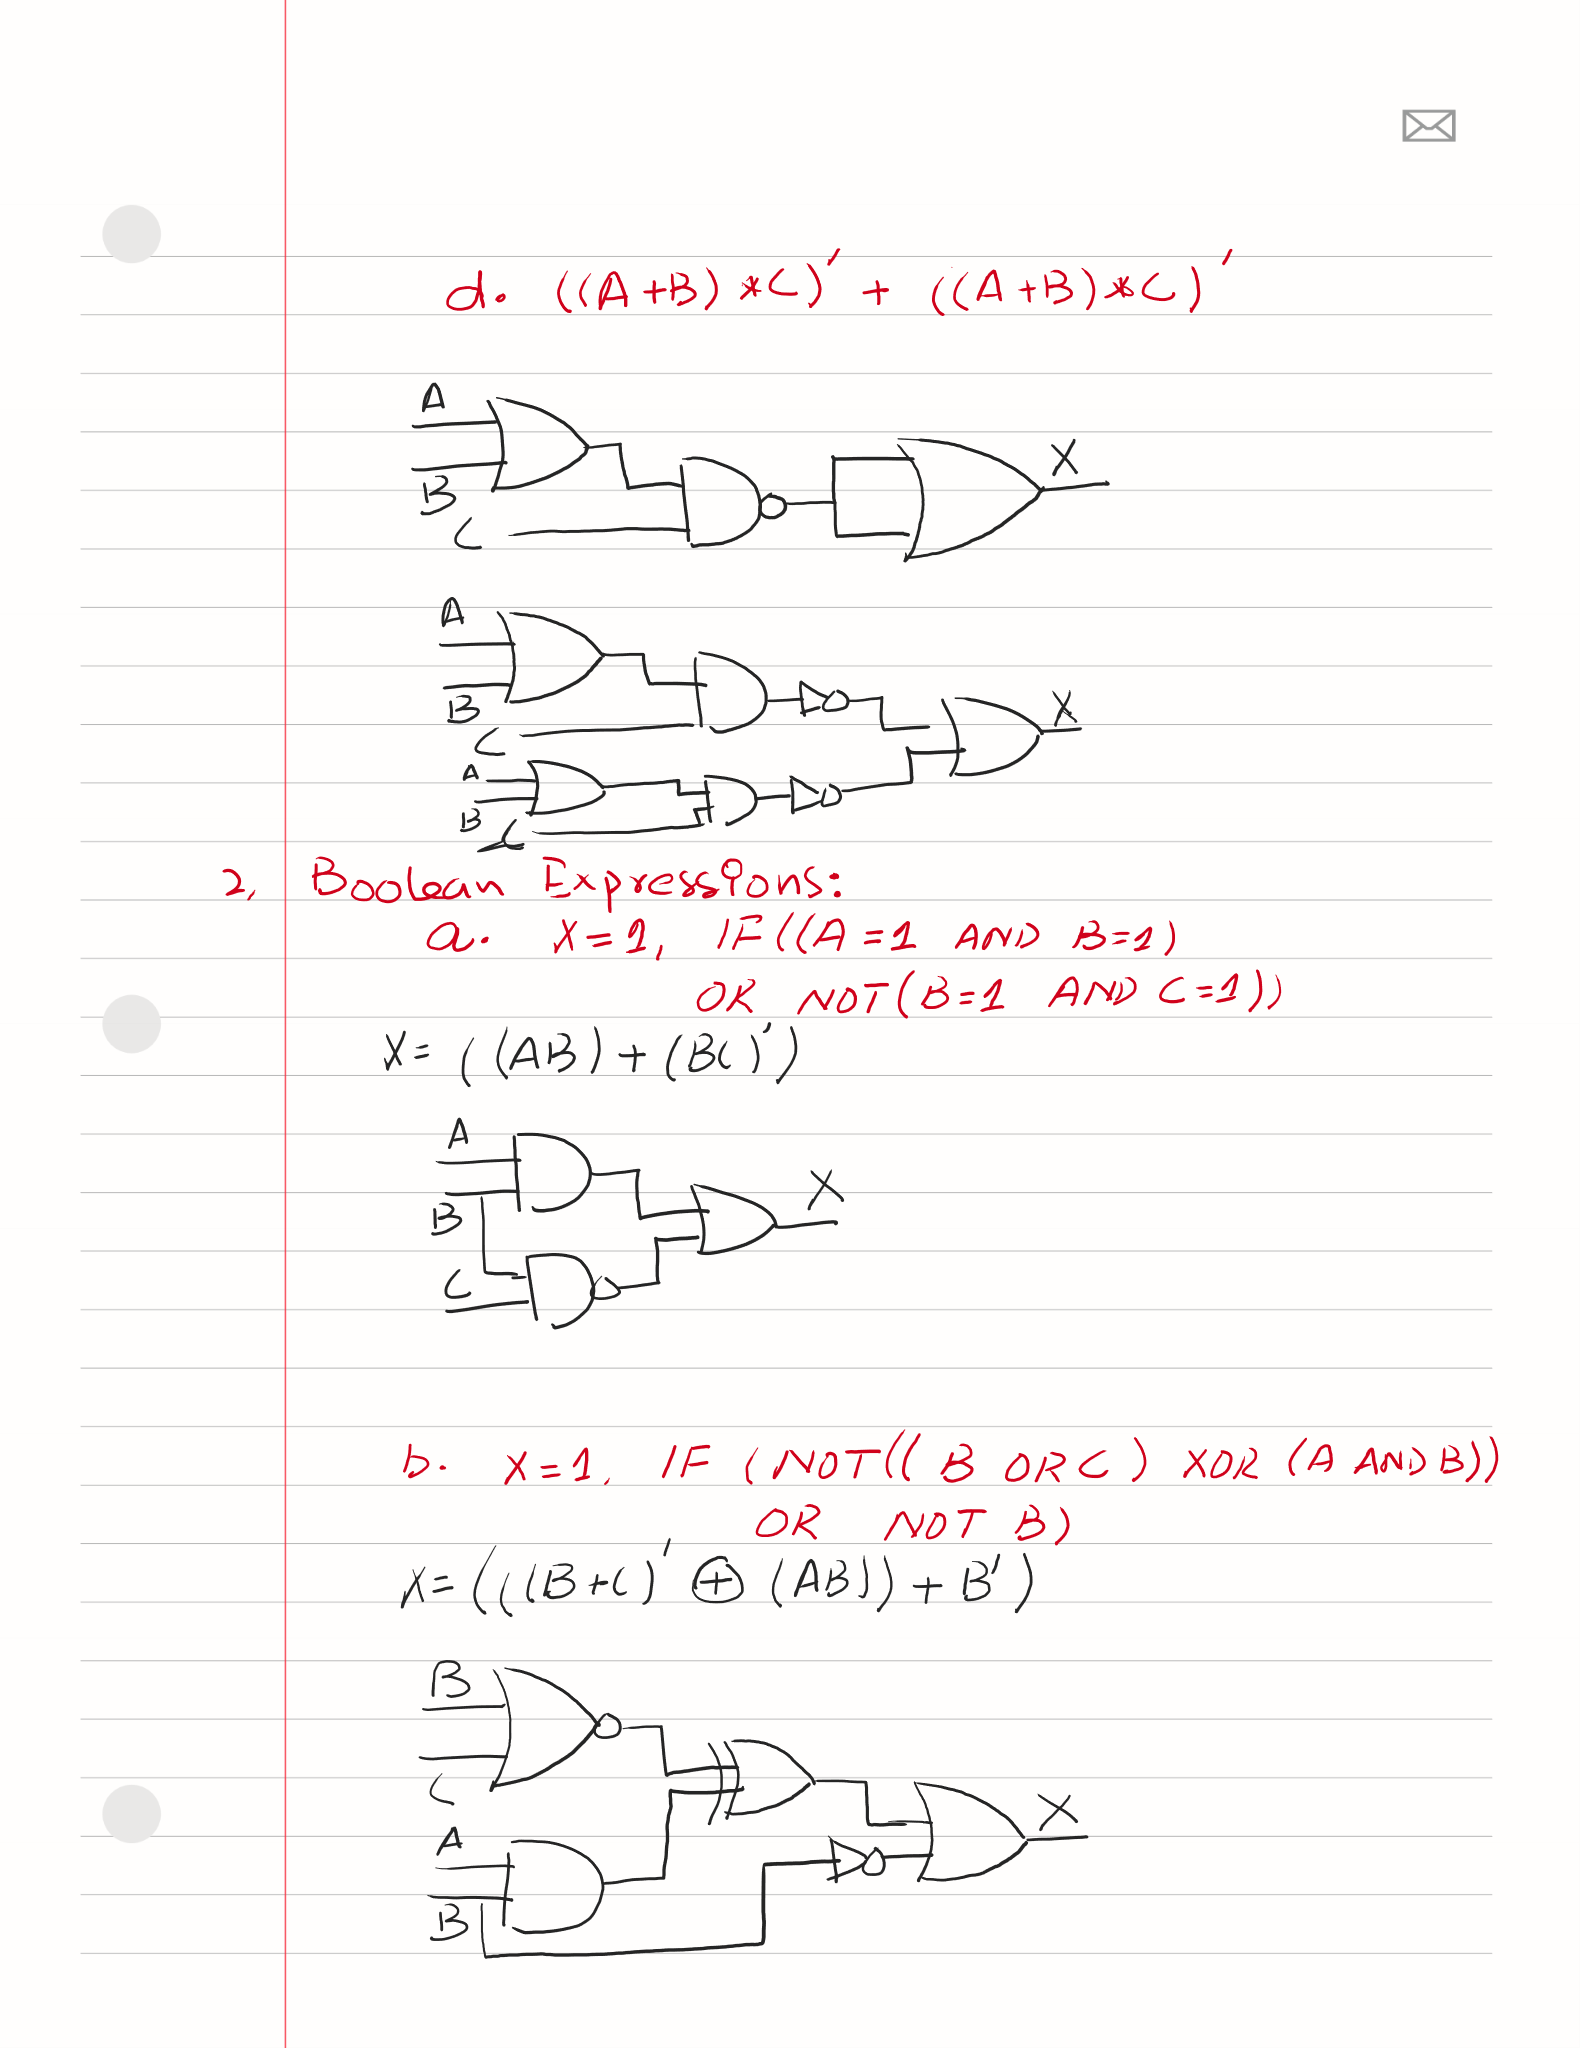 d. ((A+B)*C)' + ((A+B)*C)'
A
B
C
X
A
B
C
A
B
C
X
2. Boolean Expressions:
a. X=1, IF((A=1 AND B=1)
OR NOT(B=1 AND C=1))
X= ((AB)+(BC)')
A
B
C
X
b. X=1, IF (NOT((B OR C) XOR (A AND B))
OR NOT B)
X=(((B+C)' ⊕ (AB))+B')
B
C
A
B
X